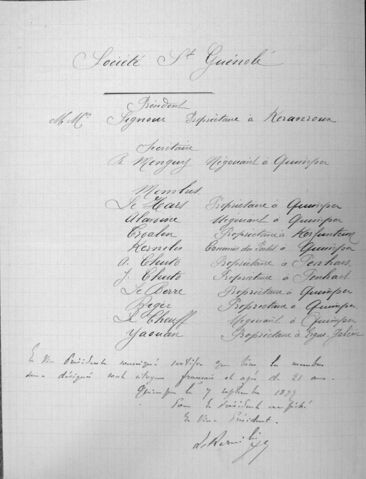 Société St Guénolé
Président
M.M. Signour Propriétaire à Keranroux
Secrétaire
A Menguy Négociant à Quimper
Membres
Le Hars Propriétaire à Quimper
Négociant à Quimper
Propriétaire à Kerfeunteun
Kernéis Commis des Postes à Quimper
A. Chuto Propriétaire à Penhars
J. Chuto Propriétaire à Penhars
Le Berre Propriétaire à Quimper
Roger Propriétaire à Quimper
Le Négociant à Quimper
Yaouanc Propriétaire à Ergué
Le Vice Président soussigné certifie que tous les membres
désignés sont citoyens français et âgés de 21 ans.
Quimper le 7 septembre
Pour le Président empêché
Le Vice Président.